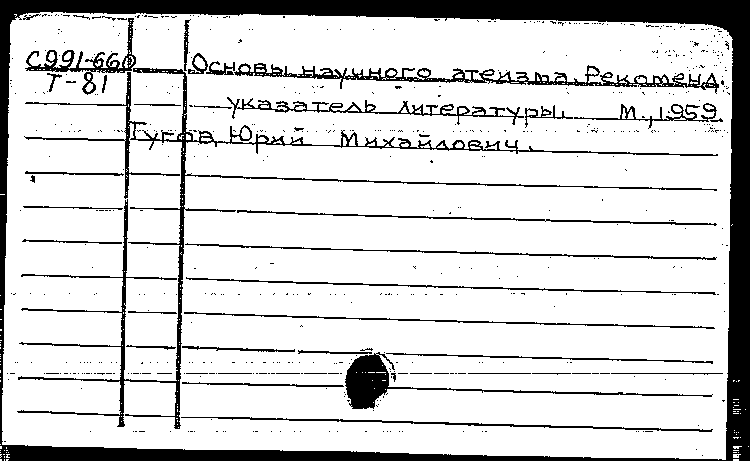 С991-660 Основы научного атеизма. Рекоменд.
Т-81 указатель литературы. М., 1959.
Тугов, Юрий Михайлович.